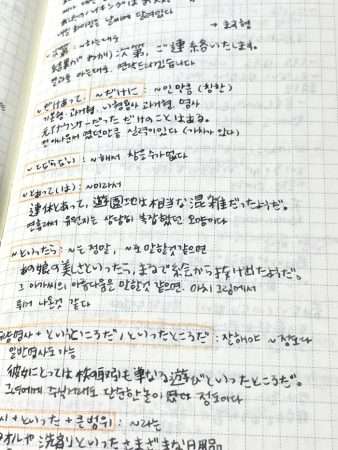 ~次第 : ~하는대로
結果がわかり次第、ご連絡いたします。
결과를 아는대로, 연락드리겠습니다
~だけあって, ~だけに : ~인 만큼 (칭찬)
기본형·과거형, い형용사 과거형, 명사
元アナウンサーだっただけのことはある。
전 아나운서였던만큼 실력이있다 (가치가 있다)
~てならない : ~해서 참을수가없다
~とあって(は) : ~이라서
連休とあって、遊園地は相当な混雑だったようだ。
연휴라서 유원지는 상당히 혼잡했던 모양이다
~といったら : ~는 정말, ~로 말할것같으면
あの娘の美しさといったら、まるで絵から抜け出たようだ。
그 아가씨의 아름다움은 말할것 같으면, 마치 그림에서
튀어 나온것 같다
+ といったところだ, というところだ : 잘해야 ~정도다
일반명사도 가능
彼女にとっては株取引も単なる遊びといったところだ。
그녀에게 주식거래도 단순한 놀이 정도이다
+ といった + 큰범위 : ~라는
タオルや洗剤といったさまざまな日用品